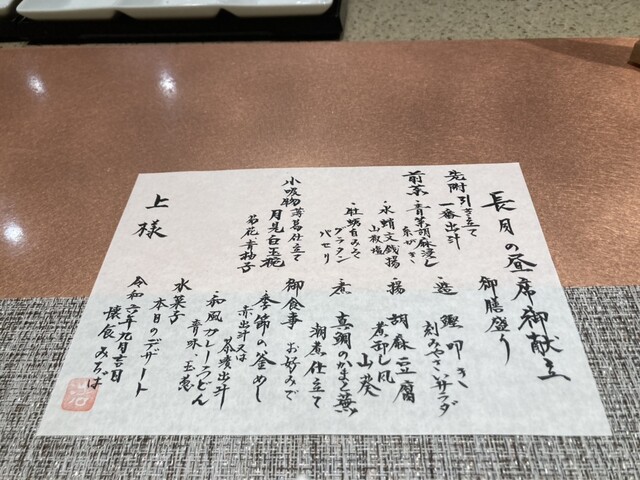 長月の昼席御献立
御膳盛り
先附 引き立て
一番出汁
前菜 青菜胡麻浸し
糸がき
水蛸文銭揚
山椒塩
牡蛎白みそ
グラタン
パセリ
小吸物 葛仕立て
月見白玉
菊花 青柚子
造 鰹叩き
刻みやさいサラダ
揚 胡麻豆腐
煮卸し風
山葵
煮 真鯛のかぶと蕪
潮煮仕立て
御食事 お好みで
季節の釜めし
赤出汁又は
茶漬出汁
和風カレーうどん
青味 玉葱
水菓子
本日のデザート
令和六年九月吉日
懐食 みちば
上様